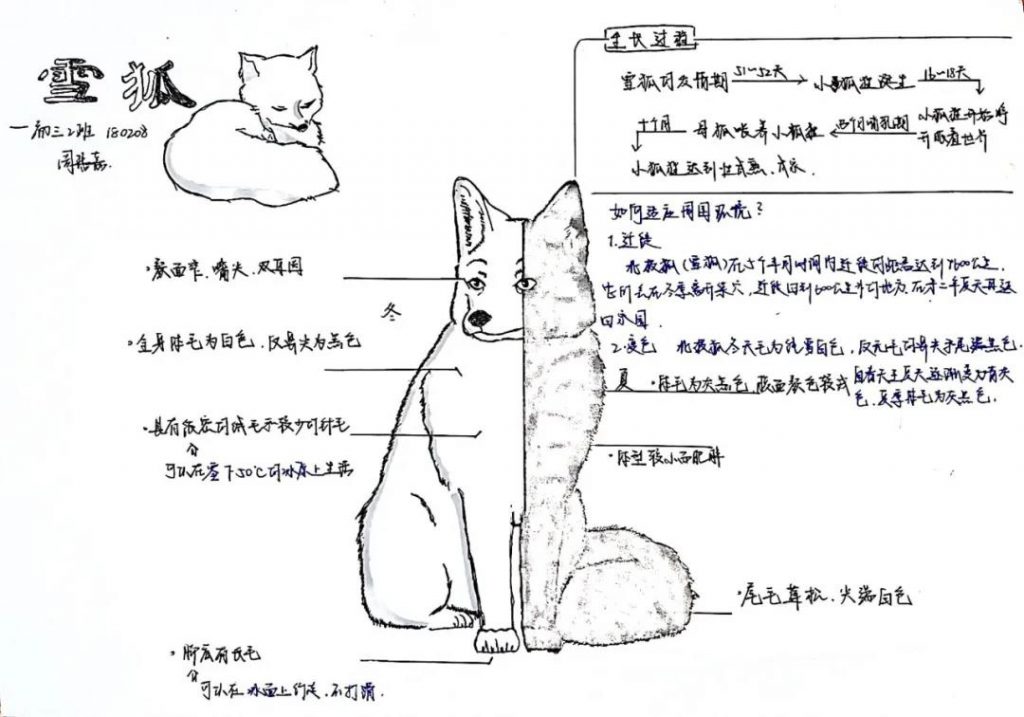 雪狐
初三2班 180208
生长过程
雪狐的发情期 51~52天 小雪狐诞生 16~18天
小狐狸开始睁开眼看世界
哺乳期 母狐喂养小狐狸 十个月
小狐狸达到性成熟、成家.
如何适应周围环境?
1.迁徙
北极狐(雪狐)在5个半月时间内迁徙的距离达到4600公里.
它们会在冬季离开巢穴,迁徙到600公里外的地方,在第二年夏天再返
回家园.
2.变色 北极狐冬天毛为纯雪白色,仅无毛的鼻尖和尾端黑色.
自春天至夏天逐渐变为青灰
色,夏季体毛为灰黑色.
·颜面窄、嘴尖、双耳圆
冬
·全身体毛为白色,仅鼻尖为黑色
·具有很密的绒毛和较少的针毛
可以在零下50℃的冰原上生活
夏 ·体毛为灰黑色,腹面颜色较浅
·体型较小而肥胖
·尾毛蓬松,尖端白色
·脚底有长毛
可以在冰面上行走,不打滑.